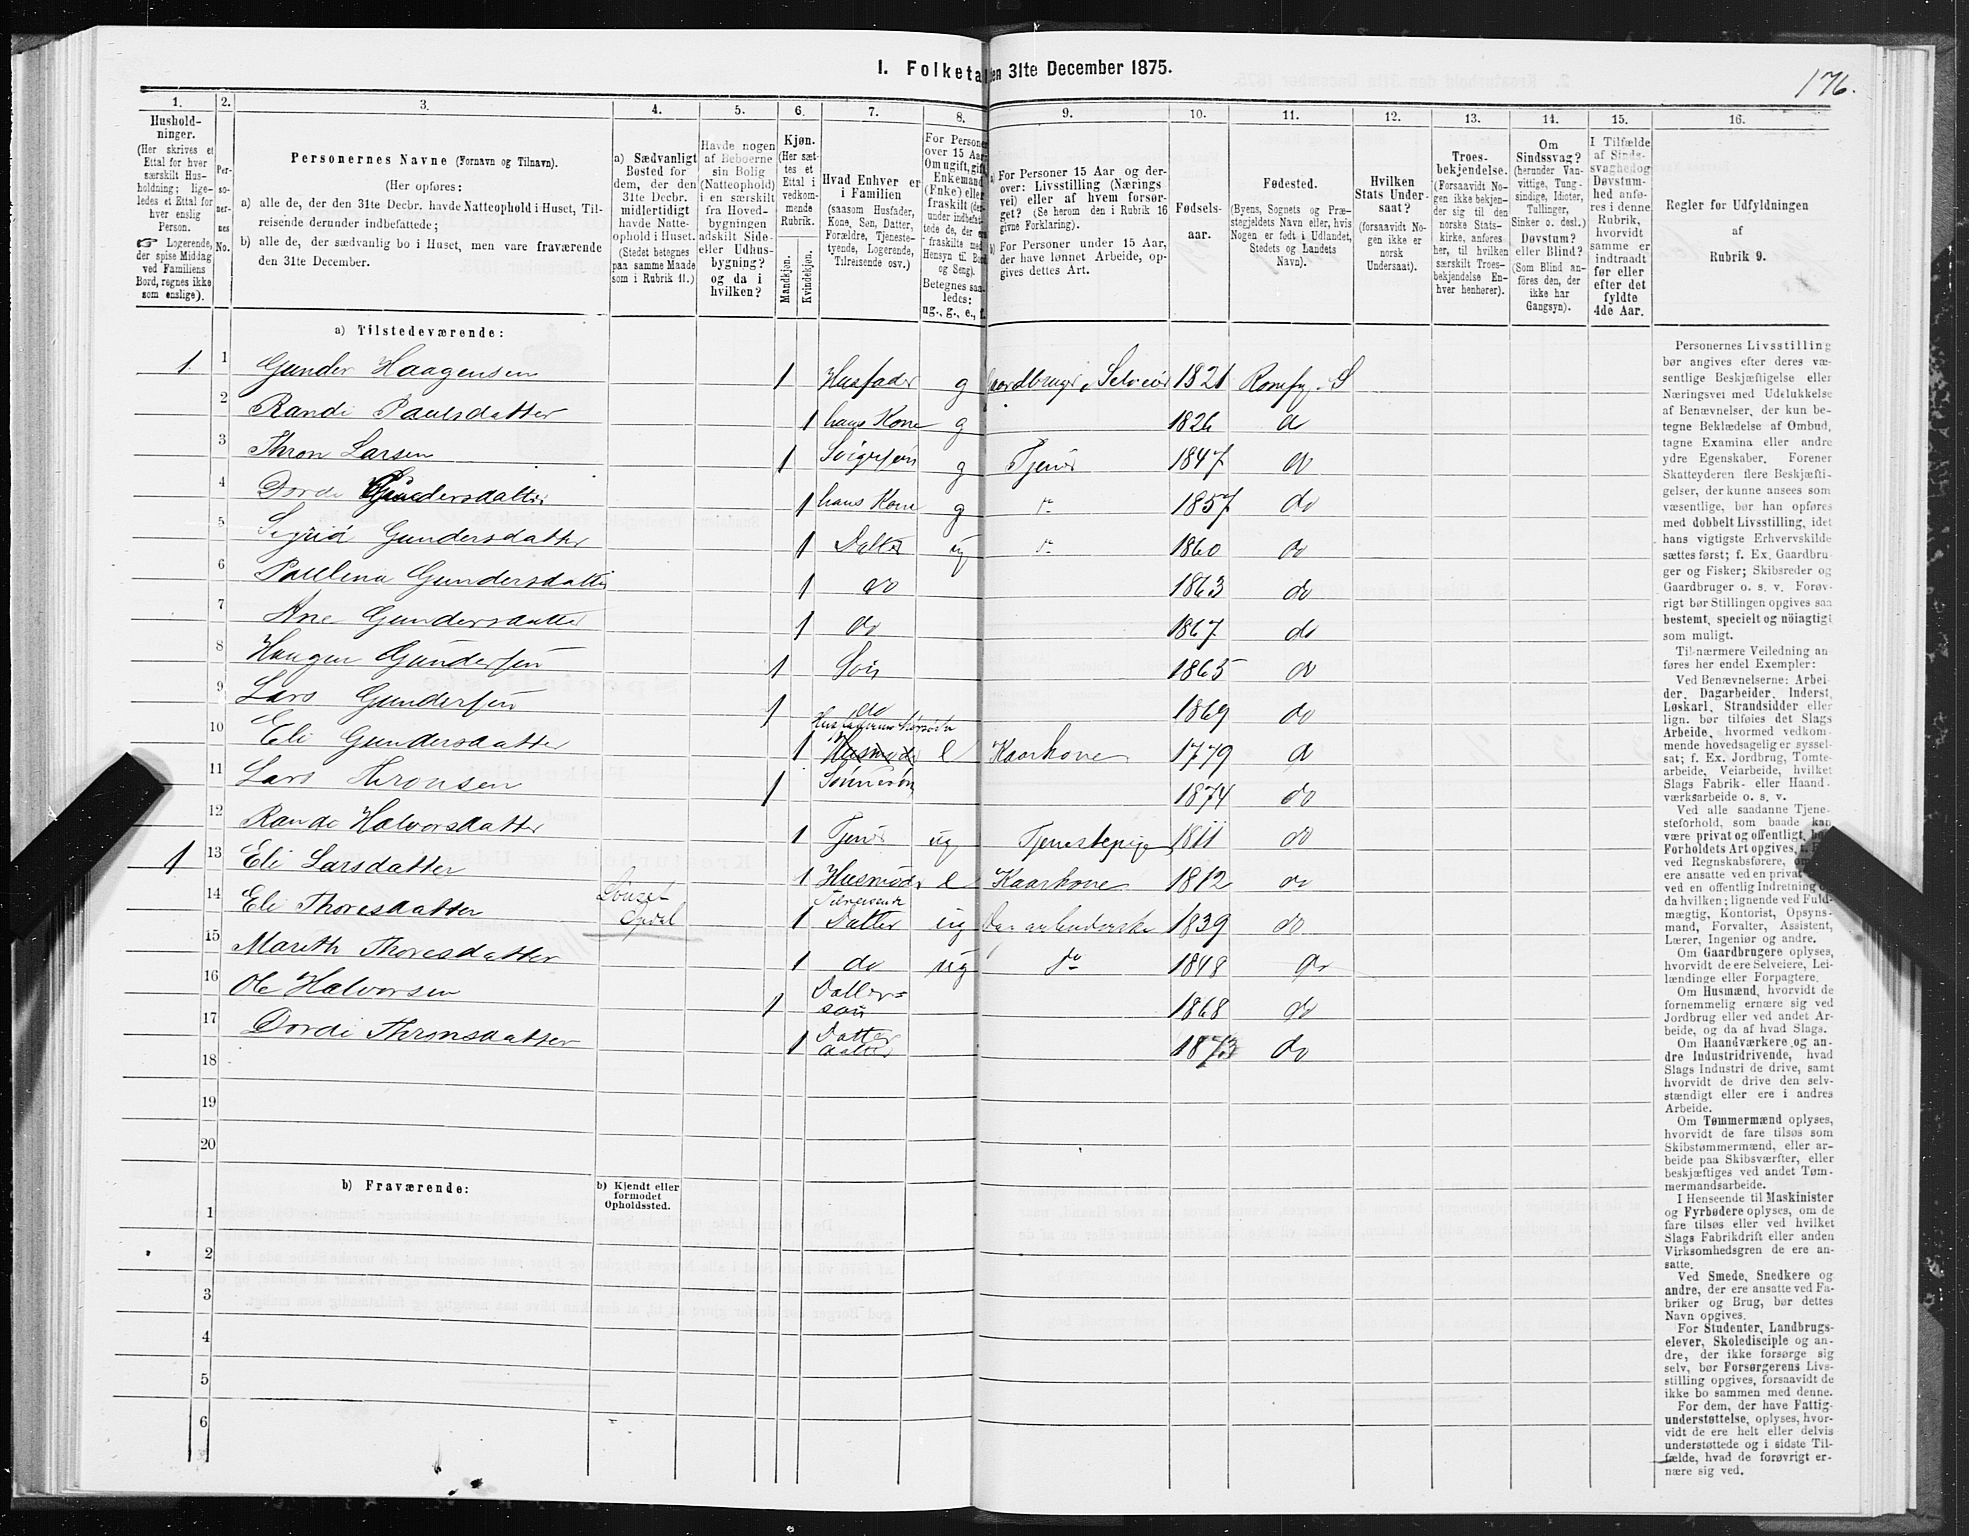 I. Folketal den 31te December 1875.
176.
1. 2. 3. 4. 5. 6. 7. 8. 9. 10. 11. 12. 13. 14. 15. 16.
Hushold-
ninger.
(Her skrives et
Ettal for hver
særskilt Hus-
holdning; lige-
ledes et Ettal for
hver enslig
Person.
☞ Logerende,
der spise Middag
ved Familiens
Bord, regnes ikke
som enslige).
Per-
so-
ner-
nes
No.
Personernes Navne (Fornavn og Tilnavn).
(Her opføres:
a) alle de, der den 31te Decbr. havde Natteophold i Huset, Til-
reisende derunder indbefattede;
b) alle de, der sædvanlig bo i Huset, men vare fraværende
den 31te December.
a) Sædvanligt
Bosted for
dem, der den
31te Decbr.
midlertidigt
havde Natte-
ophold i Huset.
(Stedet betegnes
paa samme Maade
som i Rubrik 11.)
Havde nogen
af Beboerne
sin Bolig
(Natteophold)
i en særskilt
fra Hoved-
bygningen
adskilt Side-
eller Udhus-
bygning?
og da i
hvilken?
Kjøn.
(Her sæt-
tes et
Ettal i
vedkom-
mende
Rubrik.
Mandkjøn.
Kvindekjøn.
Hvad Enhver er
i Familien
(saasom Husfader,
Kone, Søn, Datter,
Forældre, Tjeneste-
tyende, Logerende,
Tilreisende osv.)
For Personer
over 15 Aar:
Om ugift, gift,
Enkemand
(Enke) eller
fraskilt
Betegnes saa-
ledes:
ug., g., e., f.
a) For Personer 15 Aar og der-
over: Livsstilling (Nærings
vei) eller af hvem forsør-
get? (Se herom den i Rubrik 16
givne Forklaring).
b) For Personer under 15 Aar,
der have lønnet Arbeide, op-
gives dettes Art.
Fødsels-
aar.
Fødested.
(Byens, Sognets og Præ-
stegjeldets Navn eller, hvis
Nogen er født i Udlandet,
Stedets og Landets
Navn).
Hvilken
Stats Under-
saat?
(forsaavidt No-
gen ikke er
norsk
Undersaat).
Troes-
bekjendelse.
(Forsaavidt No-
gen ikke bekjen-
der sig til den
norske Stats-
kirke, anføres
her, til hvilken
særskilt Troes-
bekjendelse En-
hver henhører).
Om
Sindssvag?
(herunder Van-
vittige, Tung-
sindige, Idioter,
Tullinger,
Sinker o. desl.)
Døvstum?
eller Blind?
(Som Blind an-
føres den, der
ikke har
Gangsyn).
I Tilfælde
af Sinds-
svaghedog
Døvstum-
hed anfø-
res i denne
Rubrik,
hvorvidt
samme er
indtraadt
før eller
efter det
fyldte
4de Aar.
Regler for Udfyldningen
af
Rubrik 9.
a) Tilstedeværende:
1 1 Gunder Haagensen 1 Husfader g Gaardbruger, Selveier 1821 S
2 Randi Paulsdatter 1 hans Kone g 1826 do
3 Thron Larsen 1 Svigersøn g Tjener 1847 do
4 Dordi Gundersdatter 1 hans Kone g 1857 do
5 Sigrid Gundersdatter 1 Datter ug 1860 do
6 Paulina Gundersdatter 1 do 1863 do
7 Ane Gundersdatter 1 do 1867 do
8 Haagen Gundersen 1 Søn 1865 do
9 Lars Gundersen 1 do 1869 do
10 Eli Gundersdatter 1 e Kaarkone 1779 do
11 Lars Thronsen 1 Sønnesøn 1874 do
12 Randi Halvorsdatter 1 Tjener ug Tjenestepige 1811 do
1 13 Eli Larsdatter 1 Husmoder e Kaarkone 1812 do
14 Eli Thoresdatter Opdal 1 Tilreisende Datter ug 1839 do
15 Mareth Thoresdatter 1 do ug do 1848 do
16 Ole Halvorsen 1 Datter=søn 1868 do
17 Dordi Thronsdatter 1 Datter datter 1873 do
18
19
20
b) Fraværende:
b) Kjendt eller
formodet
Opholdssted.
1
2
3
4
5
6
Personernes Livsstilling
bør angives efter deres væ-
sentlige Beskjæftigelse eller
Næringsvei med Udelukkelse
af Benævnelser, der kun be-
tegne Beklædelse af Ombud,
tagne Examina eller andre
ydre Egenskaber. Forener
Skatteyderen flere Beskjæfti-
gelser, der kunne ansees som
væsentlige, bør han opføres
med dobbelt Livsstilling, idet
hans vigtigste Erhvervskilde
sættes først; f. Ex. Gaardbru-
ger og Fisker; Skibsreder og
Gaardbruger o. s. v. Forøv-
rigt bør Stillingen opgives saa
bestemt, specielt og nöiagtigt
som muligt.
Til nærmere Veiledning an
føres her endel Exempler:
Ved Benævnelserne: Arbei-
der, Dagarbeider, Inderst,
Løskarl, Strandsidder eller
lign. bør tilføies det Slags
Arbeide, hvormed vedkom-
mende hovedsagelig er syssel-
sat; f. Ex. Jordbrug, Tomte-
arbeide, Veiarbeide, hvilket
Slags Fabrik- eller Haand-
værksarbeide o. s. v.
Ved alle saadanne Tjene-
steforhold, som baade kan
være privat og offentligt, bør
Forholdets Art opgives,
ved Regnskabsførere,
ere ansatte ved en privat
ved en offentlig Indretning
da hvilken; lignende ved Fuld-
mægtig, Kontorist, Opsyns-
mand, Forvalter, Assistent,
Lærer, Ingeniør og andre.
Om Gaardbrugere oplyses,
hvorvidt de ere Selveiere, Lei-
lændinge eller Forpagtere.
Om Husmænd, hvorvidt de
fornemmelig ernære sig ved
Jordbrug eller ved andet Ar-
beide, og da af hvad Slags.
Om Haandværkere og an-
dre Industridrivende, hvad
Slags Industri de drive, samt
hvorvidt de drive den selv-
stændigt eller ere i andres
Arbeide.
Om Tømmermænd oplyses,
hvorvidt de fare tilsøs som
Skibstømmermænd, eller ar-
beide paa Skibsværfter, eller
beskjæftiges ved andet Tøm-
mermandsarbeide.
I Henseende til Maskinister
og Fyrbødere oplyses, om de
fare tilsøs eller ved hvilket
Slags Fabrikdrift eller anden
Virksomhedsgren de ere an-
satte.
Ved Smede, Snedkere og
andre, der ere ansatte ved Fa-
briker og Brug, bør dettes
Navn opgives.
For Studenter, Landbrugs-
elever, Skoledisciple og an-
dre, der ikke forsørge sig
selv, bør Forsørgerens Livs-
stilling opgives, forsaavidt de
ikke bo sammen med denne.
For dem, der have Fattig-
understøttelse, oplyses, hvor-
vidt de ere helt eller delvis
understøttede og i sidste Til-
fælde, hvad de forøvrigt er-
nære sig ved.